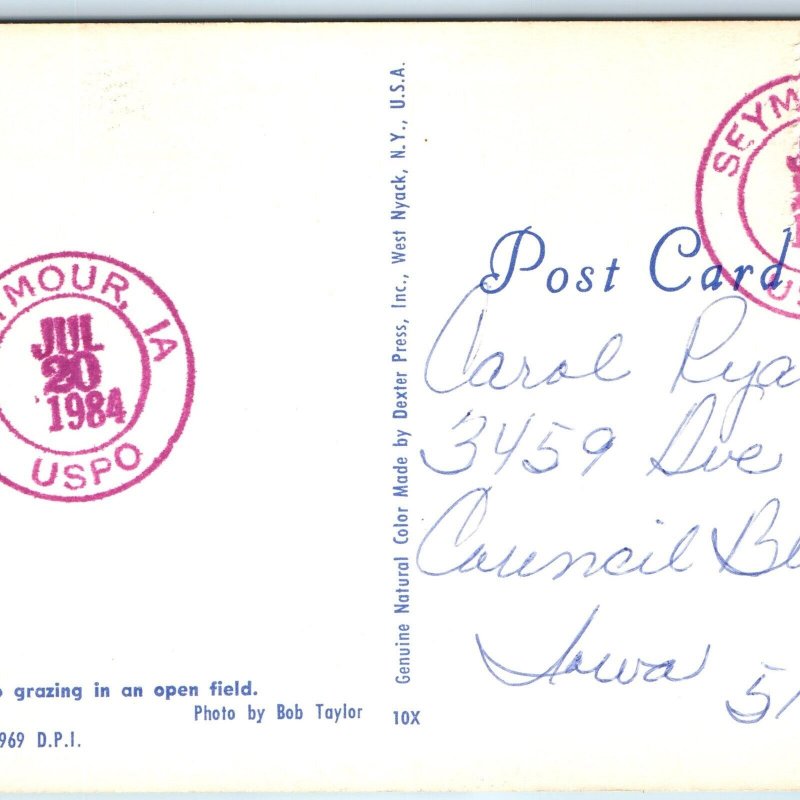 YMOUR, IA
JUL
20
1984
USPO
grazing in an open field.
Photo by Bob Taylor
969 D.P.I.
Genuine Natural Color Made by Dexter Press, Inc., West Nyack, N.Y., U.S.A.
10X
SEYM
US
Post Card
Carol Rya
3459 Ave
Council Bl
Iowa 51